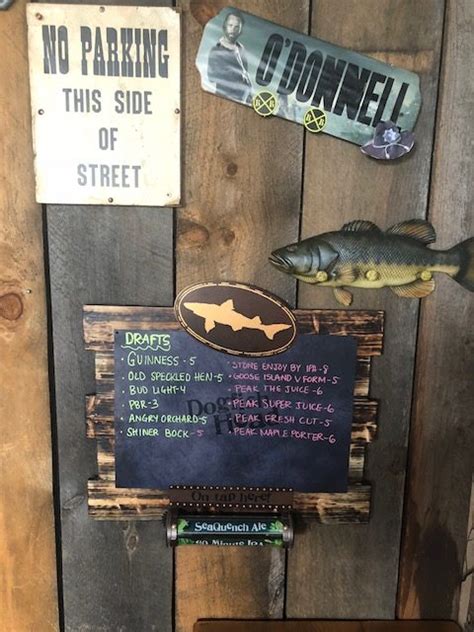 NO PARKING
THIS SIDE
OF
STREET
O'DONNELL
DRAFTS
GUINNESS-5
OLD SPECKLED HEN-5
BUD LIGHT-4
PBR-3
ANGRY ORCHARD-5
SHINER BOCK-5
STONE ENJOY BY IPA-8
GOOSE ISLAND V FORM-5
PEAK THE JUICE-6
PEAK SUPER JUICE-6
PEAK FRESH CUT-5
PEAK MAPLE PORTER-6
On tap here!
SeaQuench Ale
60 Minute IPA